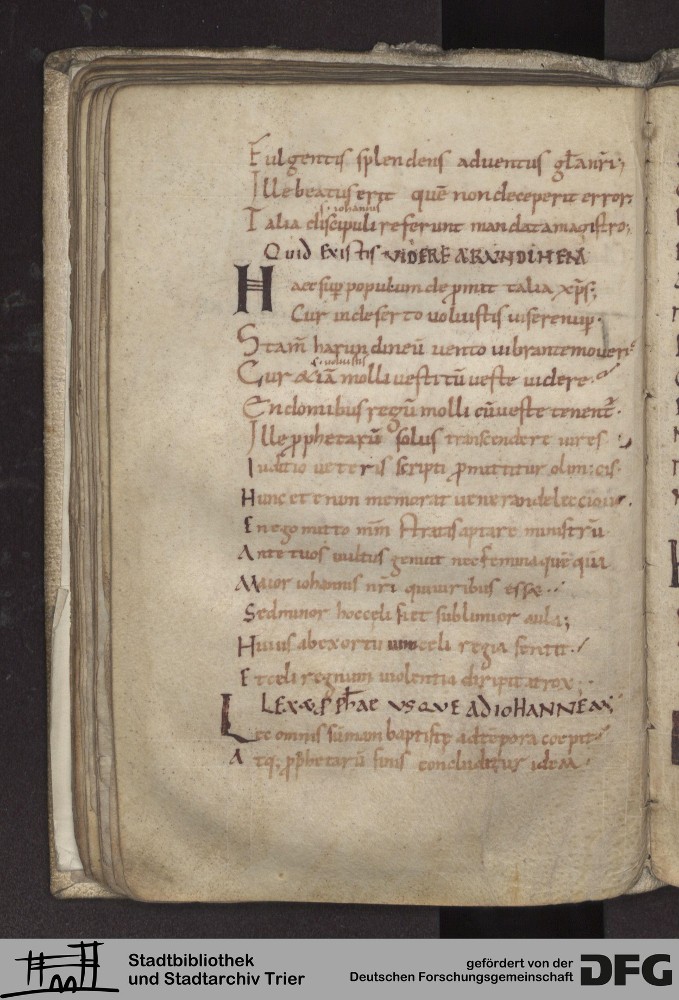 Fulgentis splendens adventus
Ille beatus erit quē non deceperit error
s. iohannis
Talia discipuli referunt mandata magistro;
Quid existis videre
Haec sup populum de talia xp̄s;
Cur in deserto voluistis
Stam̄ harundineū vento vibrante moveri
s. voluistis
Cur &iā molli vestitū veste videre
En domibus regū molli cū veste tenent̄.
Ille pphetarū solus transcendere vires
Iuditio veteris scripti
Hunc etenim memorat
En ego mitto ministrū
Ante tuos vultus genuit nec femina
Maior iohannis viribus esse
Sed minor hoc celi fiet sublimior aula;
Huius ab exortu celi regia sentit
Et celi regnum violentia diripit atrox
LEX ET PPHAE VSQVE AD IOHANNEM
Lec omnis sūmam baptistę ad tēpora coepit
Atq; pphetarū finis concluditur idem
Stadtbibliothek
und Stadtarchiv Trier
gefördert von der
Deutschen Forschungsgemeinschaft
DFG